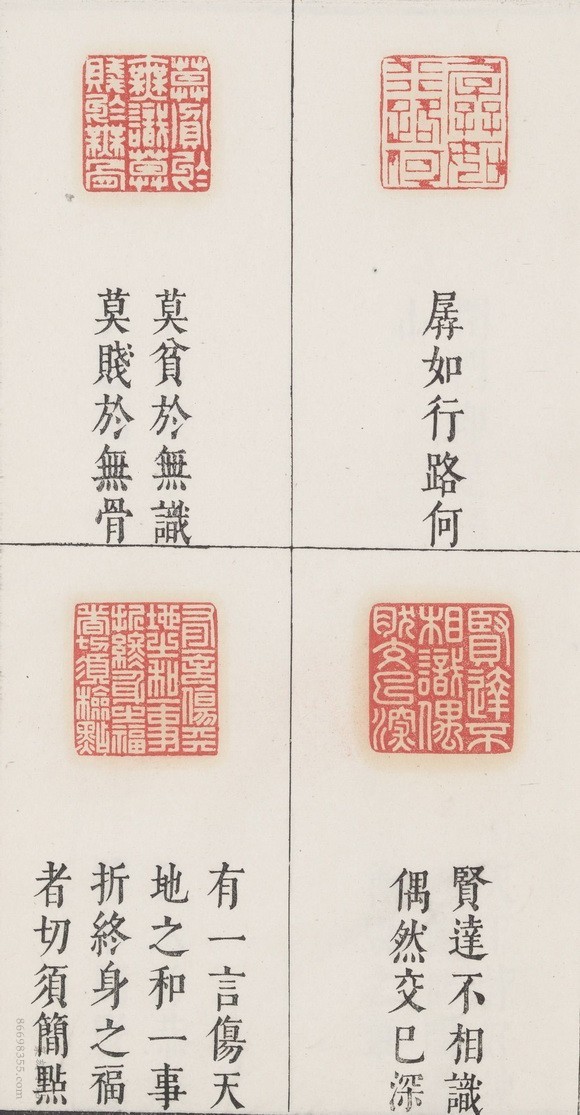 孱如行路何
莫貧於無識
莫賤於無骨
賢達不相識
偶然交已深
有一言傷天
地之和一事
折終身之福
者切須簡點
86698355.com